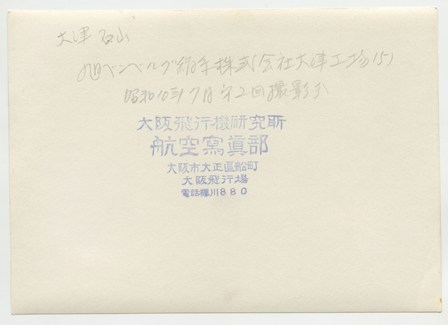 大津 石山
旭ベンベルグ絹糸株式会社大津工場(5)
昭和10年7月 第2回撮影
大阪飛行機研究所
航空寫眞部
大阪市大正區船町
大阪飛行場
電話櫻川880